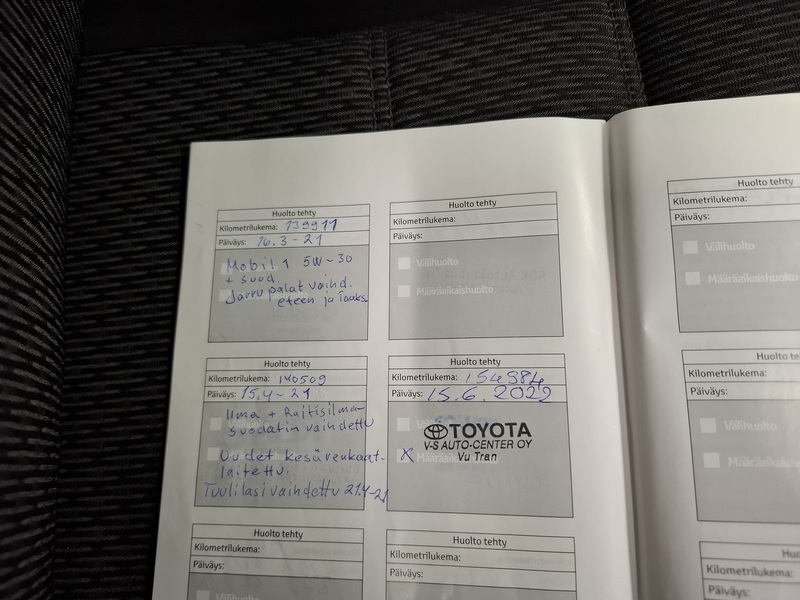 Huolto tehty
Kilometrilukema: 139911
Päiväys: 16.3-21
Mobil 1 5W-30
+ suod.
Jarrupalat vaihd.
eteen ja taaks
Huolto tehty
Kilometrilukema:
Päiväys:
Välihuolto
Määräaikaishuolto
Huolto tehty
Kilometrilukema: 140509
Päiväys: 15.4-21
Ilma + Raitisilma-
suodatin vaihdettu
Uudet kesärenkaat
laitettu.
Tuulilasi vaihdettu 21.4-21
Huolto tehty
Kilometrilukema: 154984
Päiväys: 15.6.2022
TOYOTA
V-S AUTO-CENTER OY
Vu Tran
X Määräaikaishuolto
Huolto tehty
Kilometrilukema:
Päiväys:
Välihuolto
Huolto tehty
Kilometrilukema:
Päiväys:
Huolto tehty
Kilometrilukema:
Päiväys:
Välihuolto
Määräaikaishuolto
Huolto te
Kilometrilukema:
Päiväys:
Välihuolto
Määräaikaishuolto
Huolto
Kilometrilukema:
Päiväys: